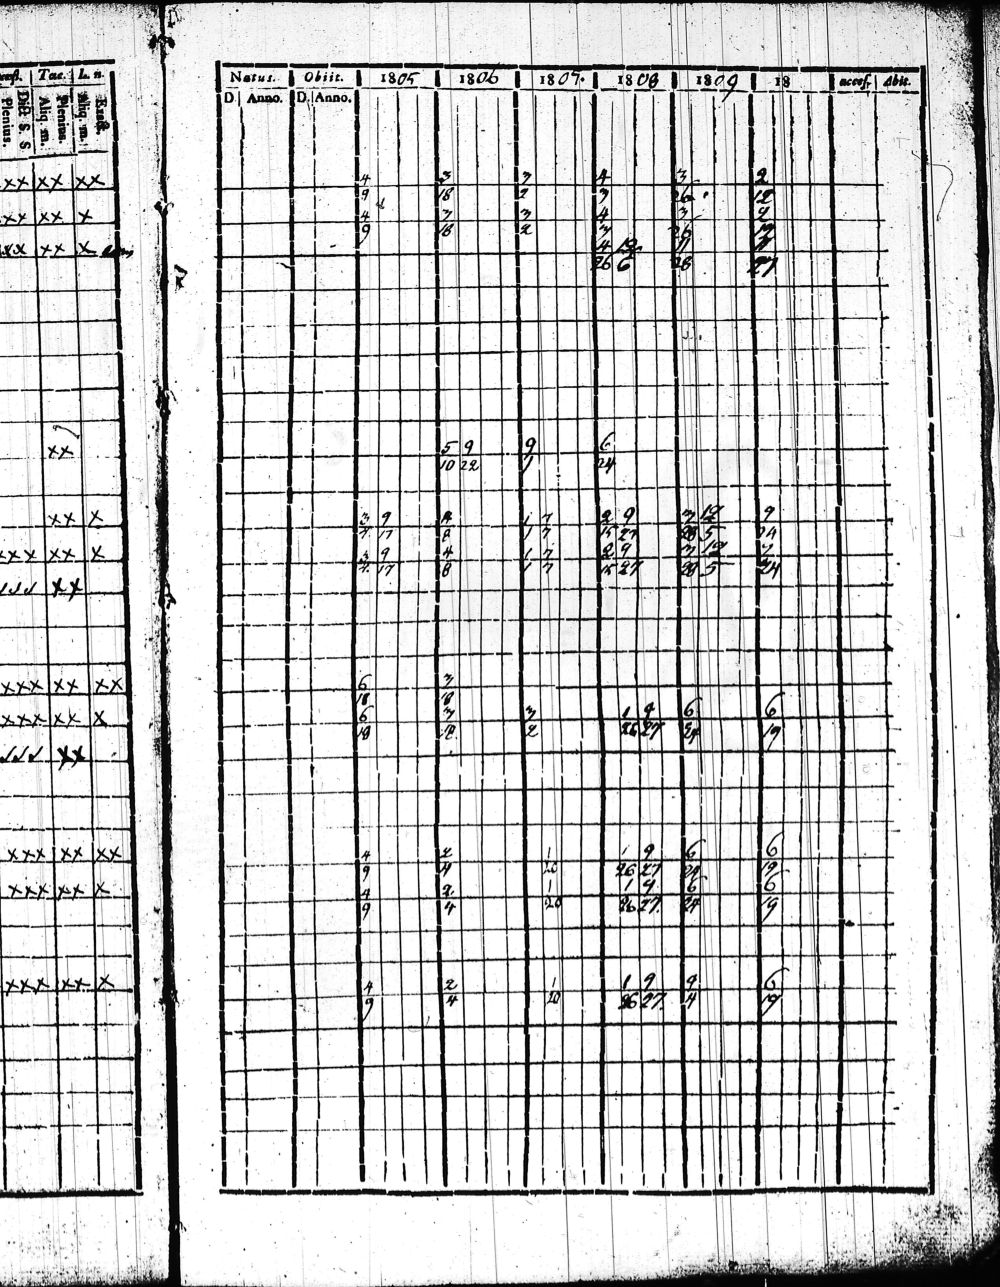 Tac. L. n.
Plenius.
Dict S. S
Aliq. m.
Plenius.
Aliq. m.
Natus. Obiit. 1805 1806 1807. 1808 1809 18 access. Abit.
D Anno. D. Anno.
xx xx xx 4 3 3 4 3 2
9 18 2 3 26 12
xx xx x 4 3 3 4 3 2
9 18 2 3 26 12
xx xx x 4 12 11
26 6 28 27
xx 5 9 9 6
10 22 1 24
xx x 3 9 4 1 7 2 9 3 12 9
7 17 8 1 7 15 27 28 5 24
xxx xx x 3 9 4 1 7 2 9 3 12
7 17 8 1 7 15 27 28 5 24
xx
xxx xx xx 6 3
18 18
xxx xx x 6 3 3 1 9 6 6
18 2 26 27 24 19
xx
xxx xx xx 4 2 1 1 9 6 6
9 4 20 26 27 24 19
xxx xx x 4 2 1 1 9 6 6
9 4 20 26 27 24 19
xxx xx x 4 2 1 1 9 9 6
9 4 20 26 27 4 19